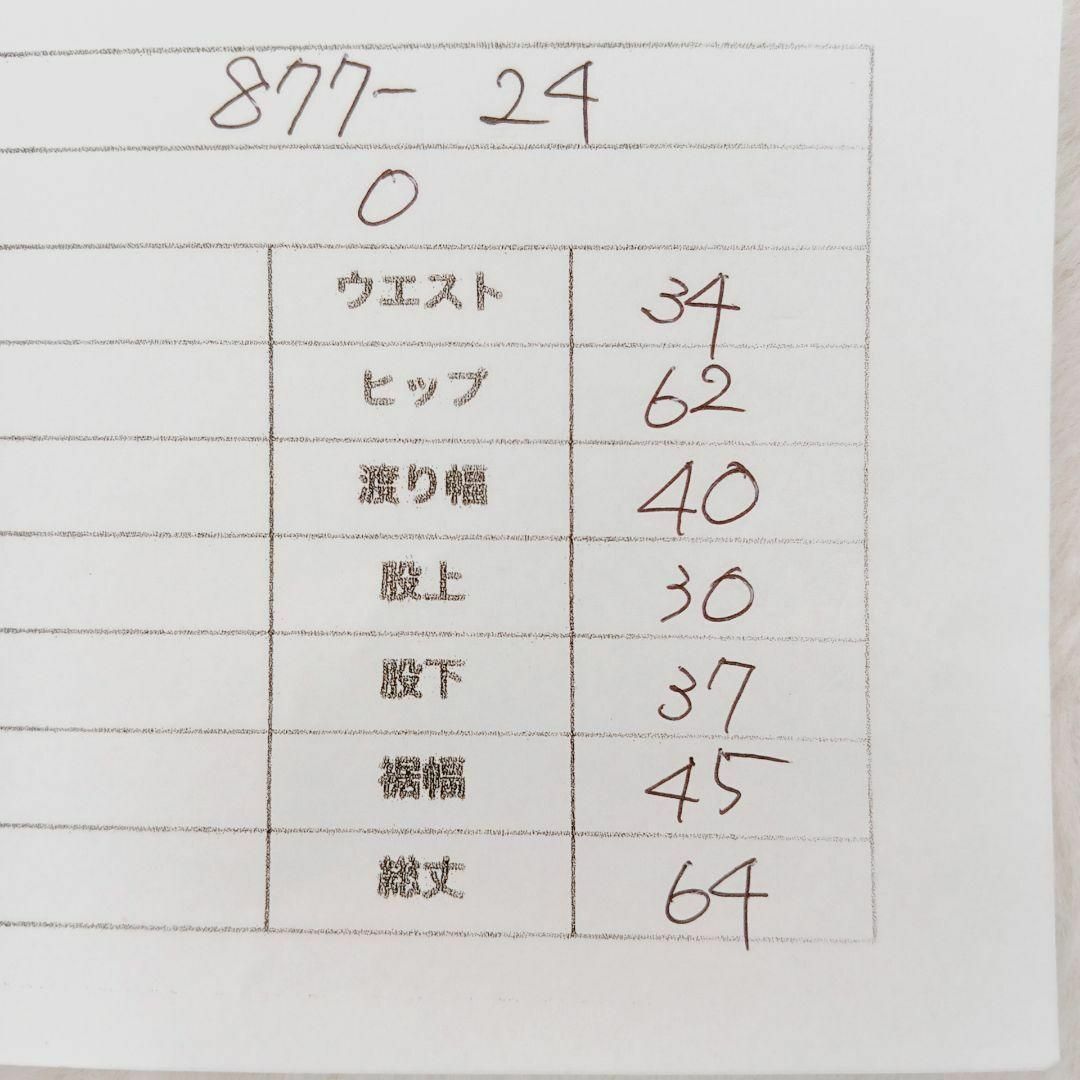 877- 24
0
ウエスト 34
ヒップ 62
渡り幅 40
股上 30
股下 37
裾幅 45
総丈 64